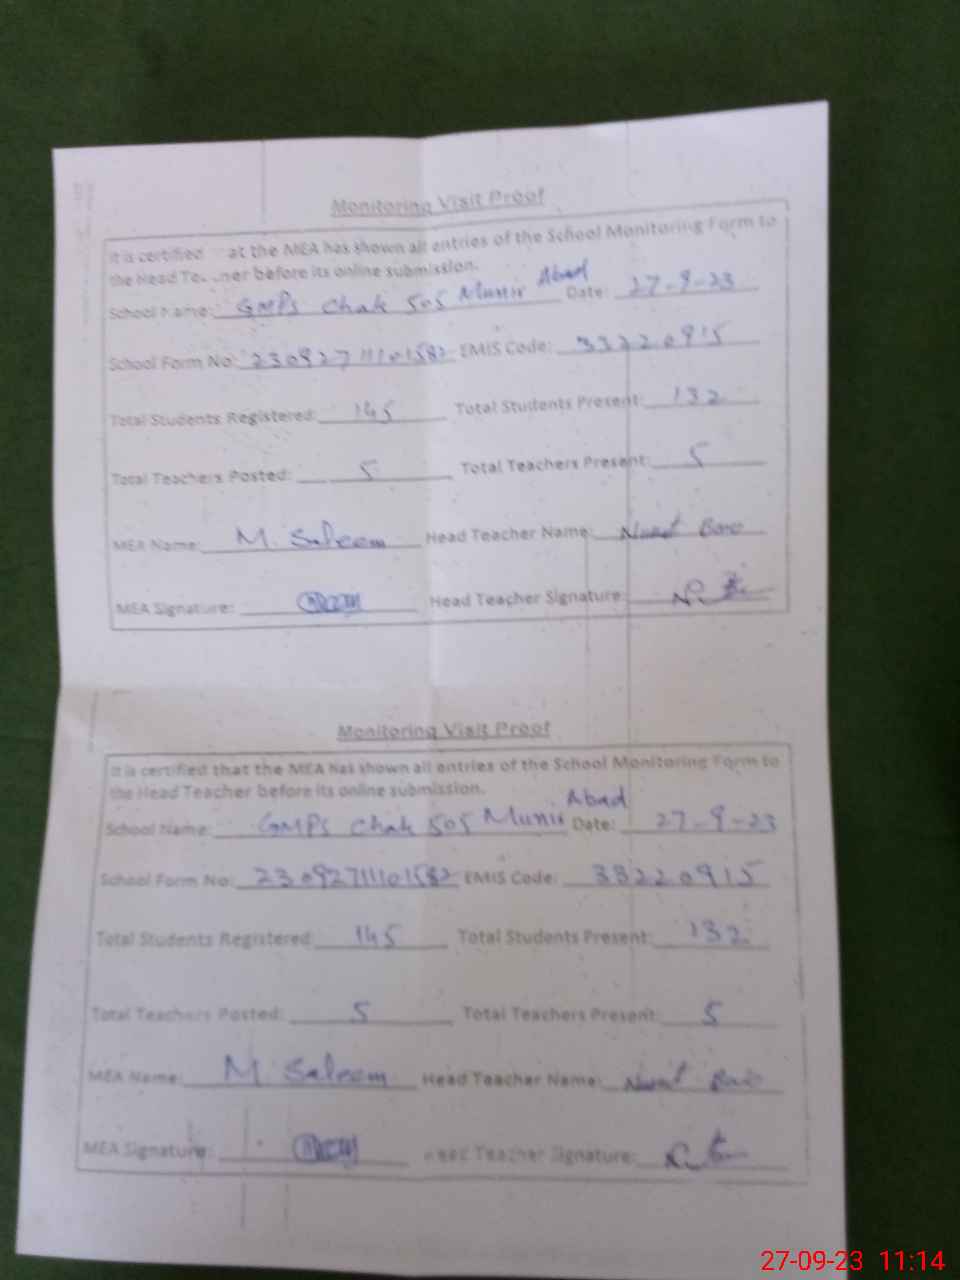 Monitoring Visit Proof
It is certified at the MEA has shown all entries of the School Monitoring Form to
the Head Te...ner before its online submission.
School Name: GMPS Chak 505 Munir Abad Date: 27-9-23
School Form No: 230927111101582 EMIS Code: 33220915
Total Students Registered: 145 Total Students Present: 132
Total Teachers Posted: 5 Total Teachers Present: 5
MEA Name: M. Saleem Head Teacher Name:
MEA Signature: Head Teacher Signature:
Monitoring Visit Proof
It is certified that the MEA has shown all entries of the School Monitoring Form to
the Head Teacher before its online submission.
School Name: GMPS Chak 505 Munir Abad Date: 27-9-23
School Form No: 230927111101582 EMIS Code: 33220915
Total Students Registered: 145 Total Students Present: 132
Total Teachers Posted: 5 Total Teachers Present: 5
MEA Name: M. Saleem Head Teacher Name:
MEA Signature: Head Teacher Signature:
27-09-23 11:14